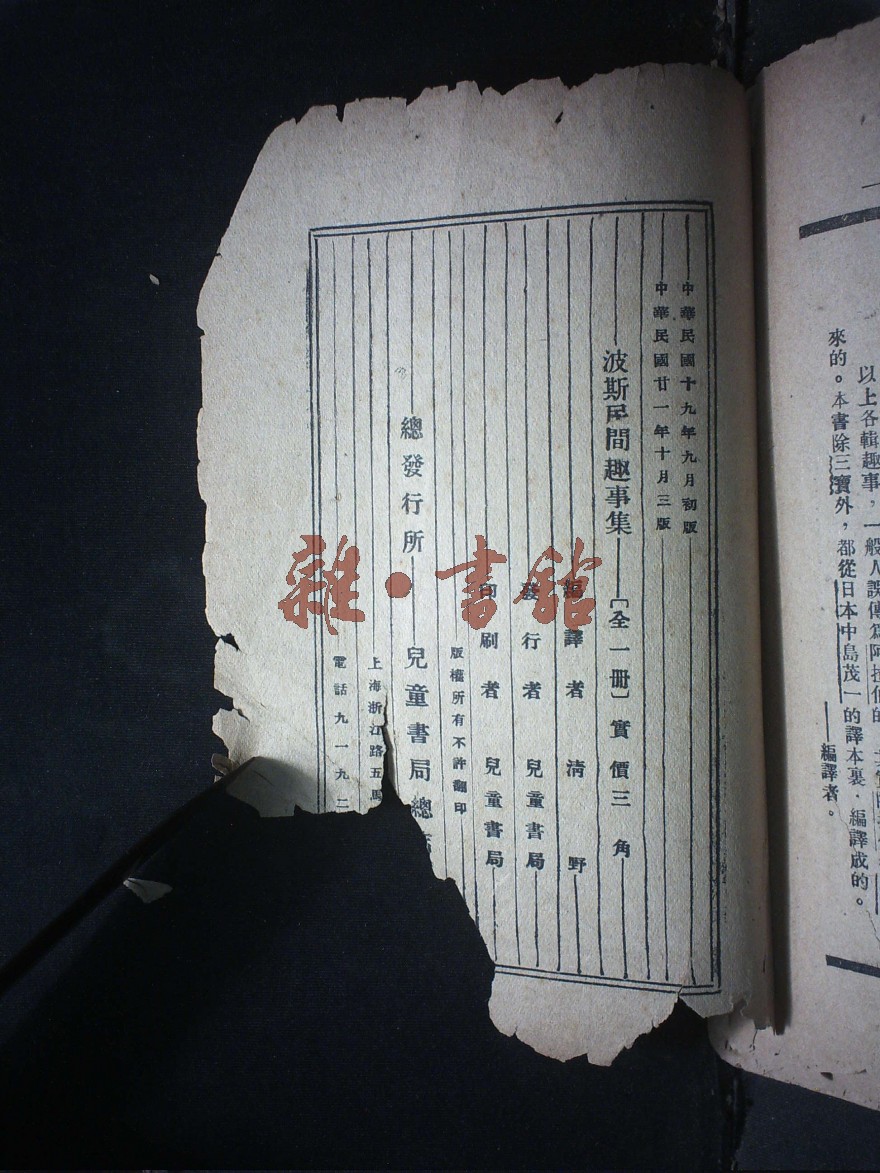 以上各輯趣事，一般人誤傳爲阿拉伯的
來的。本書除三寶外，都從日本中島茂一的譯本裏，編譯成的。
——編譯者。
中華民國十九年九月初版
中華民國廿一年十月三版
波斯民間趣事集——〔全一册〕實價三角
編譯者 清野
發行者 兒童書局
印刷者 兒童書局
版權所有不許翻印
總發行所——兒童書局總店
上海浙江路五馬
電話九一九二
雜·書館